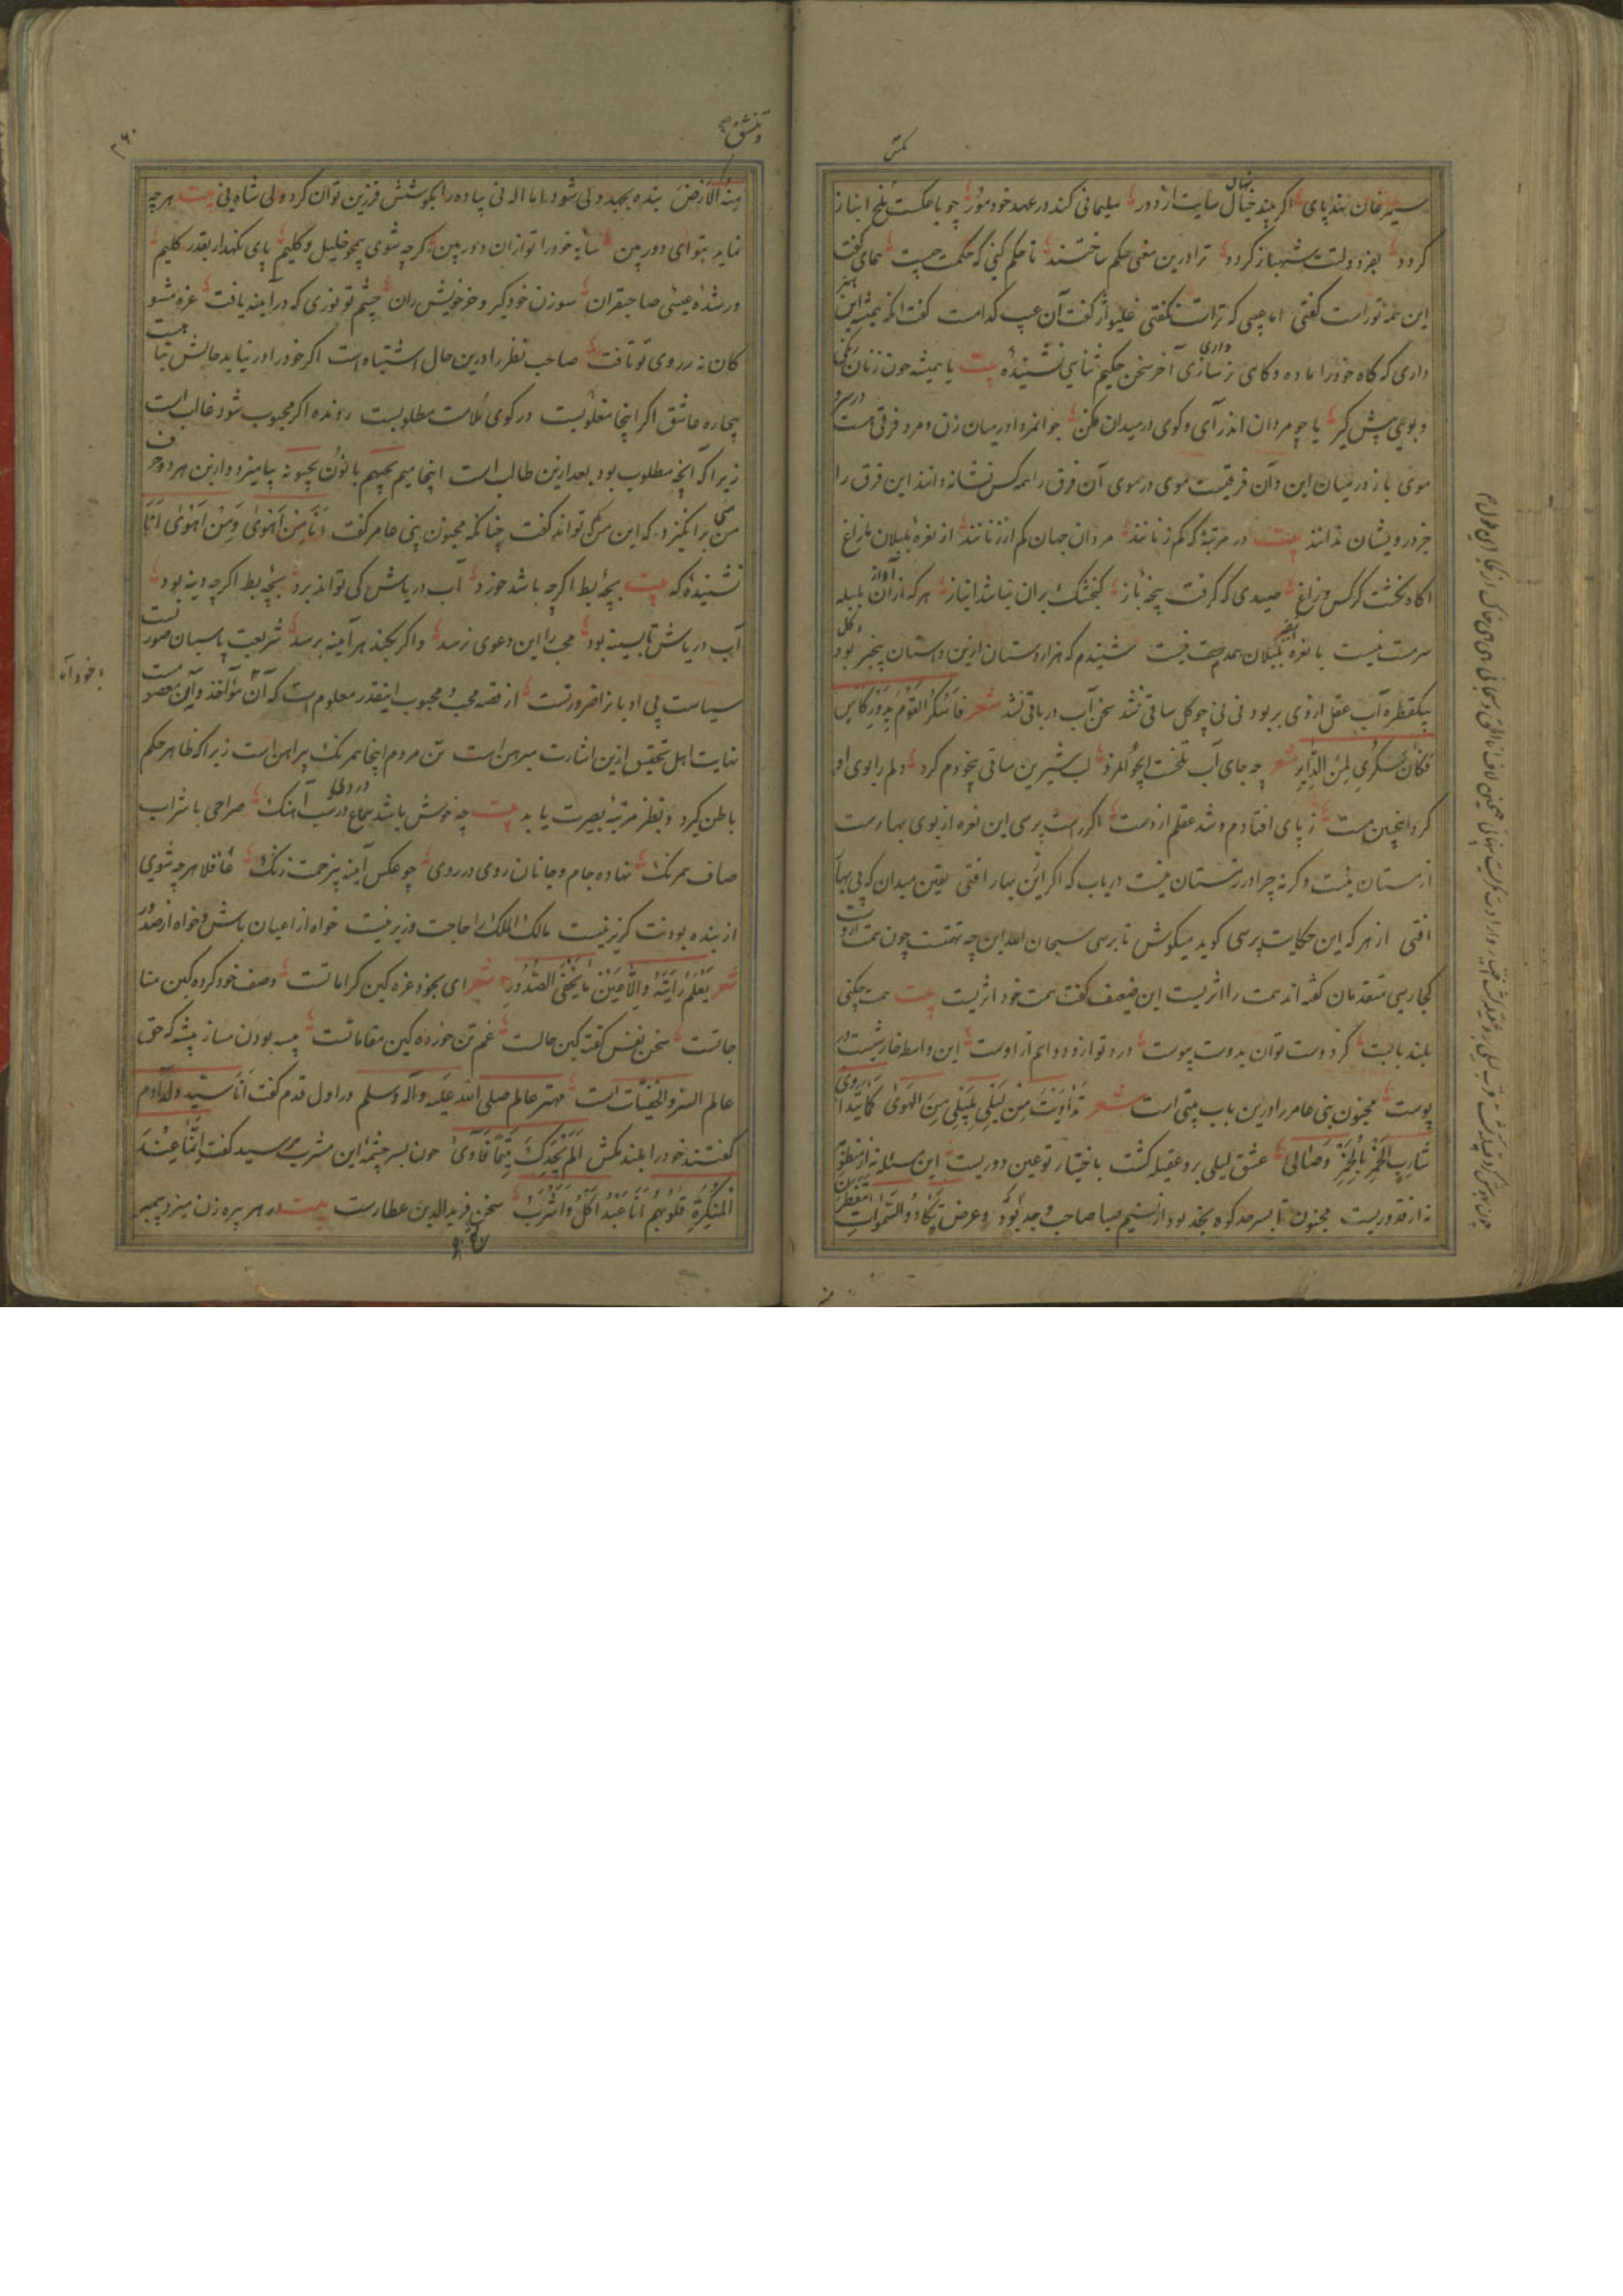 سیمرغان نهند پای اگر پند خیال سایت از دور سلیمانی کند در عهد خود مور چو با عکست ملخ انباز
گردد بفر دولتت شهباز گردد ترا درین معنی حکم ساختند تا حکم کنی که حکمت چیست همای گفت
این همه تو راست گفتی اما عیبی که تراست نگفتی غلیواژ گفت آن عیب کدامست گفت آنکه همیشه این
داری که گاه خود را ماده و گاهی نر سازی آخر سخن حکیم ثنایی نشنیده بیت یا همیشه چون زنان رنگی
و بویی پیش گیر یا چو مردان اندر آی و گوی در میدان فکن جوانمردا در میان زن و مرد فرقی هست
موی باز در میان این و آن فرقیست موی در موی آن فرق را همه کس نشانه دانند این فرق را
جز درویشان ندانند بیت در مرتبه که کم زنانند مردان جهان کم از زنانند از نعره بلبلان باغ
آگاه نگشت کرگس و زاغ صیدی که گرفت پنجه باز گنجشک بران نباشد انباز هر که از آواز بلبله
سرمست نیست با نعره بلبلان همدم نیست شنیدم که هزاردستان ازین داستان بیخبر بود
یکقطره آب عقل از وی بربود نی نی چو گل ساقی نشد سخن آب در باقی شد شعر فاسکر القوم بدور کاس
فکان سکری لمن الدایر شعر چه جای آب تلخست ای جوانمرد لب شیرین ساقی بیخودم کرد دلم را بوی او
کرد اینچنین مست ز پای افتادم و شد عقلم از دست اگر راست پرسی این نعره از بوی بهارست
از مستان نیست وگرنه چرا در زمستان نیست دریاب که اگر این بهار افتی یقین میدان که بی بها
افتی از هر که این حکایت پرسی گوید میکوش تا برسی سبحان الله این چه تهمتست چون همت از وست
کجا رسی متقدمان گفته اند همت را اثریست این ضعیف گفت همت خود اثریست بیت همت چکنی
بلند بالیت کز دوست توان بدوست پیوست درد تو ازو دوا هم از اوست این واسطه خار پشت در
پوست مجنون بنی عامر را درین باب بیتی است شعر تداویت من لیلی بلیلی من الهوی کما یتداوی
شارب الخمر بالخمر وصالی عشق لیلی بر دعقیله گشت با ختیار تو عین دوریست این مسئله نه از منظور
نه از قدوریست مجنون تا بسرحد کوه نجد بود از نسیم صبا صاحب وجد بود و عرض تکاد السموات یتفطرن
منه الارض بنده بجهد ولی شود اما اله نی پیاده را بکوشش فرزین توان کرد ولی شاه نی بیت هر چه
نماید بتو ای دوربین سایه خود را تو از آن دور بین گرچه شوی همچو خلیل و کلیم پای نگهدار بقدر گلیم
ور شده عیسی صاحبقران سوزن خود گیر و خر خویش ران چشم تو نوری که در آینه یافت غره مشو
کان نه ز روی تو تافت صاحب نظر را درین حال اشتباه است اگر خود را دریابد حالش تباهست
بیچاره عاشق اگر اینجا مغلوبیست در کوی ملامت مطلوبیست رونده اگر محبوب شود غالب است
زیرا که آنچه مطلوب بود بعد ازین طالب است اینجا میم یحبهم با نون یحبونه بیامیزد و ازین هر دو حرف
من برانگیزد که این من کسی تواند گفت چنانکه مجنون بنی عامر گفت انا من اهوی و من اهوی انا
نشنیده که بیت بچه بط اگر چه باشد خورد آب دریاش کی تواند برد بچه بط اگر چه دینه بود
آب دریاش تا بسینه بود محب را این دعوی نرسد و اگر بکند هر آینه برسد شریعت پاسبان صورتست
سیاست بی ادبانرا ضرورتست از قصه محب و محبوب اینقدر معلوم است که آن مؤاخذ و این معصومست
نهایت اهل تحقیق ازین اشارت مبرهن است تن مردم اینجا همرنگ پیراهن است زیرا که ظاهر حکم
باطن گیرد و نظر مرتبه بصیرت یابد بیت چه خوش باشد سماع در شب آهنگ صراحی با شراب
صاف همرنگ نهاده جام و جانان روی در روی چو عکس آینه بی زحمت زنگ غافلا هر چه شوی
از بنده بودنت گریز نیست مالک الملک را حاجت وزیر نیست خواه از اعیان باش و خواه از صدور
شعر یعلم رایته والاعین ما یخفی الصدور شعر ای بخود غره کین کراماتست وصف خود کرده کین منا
جاتست سخن نفس گفته کین حالست غم تن خورده کین مقاماتست پیسه بودن مساز پیشه که حق
عالم السر والخفیات است مهتر عالم صلی الله علیه وآله وسلم در اول قدم گفت انا سید ولد آدم
گفتند خود را بلند مکش الم یجدک یتیما فآوی چون بسرچشمه این مشرب رسید گفت انا عند
المنکسرة قلوبهم انا عبد آکل واشرب سخن فرید الدین عطارست بیت در هر پره زن میزد پیمبر